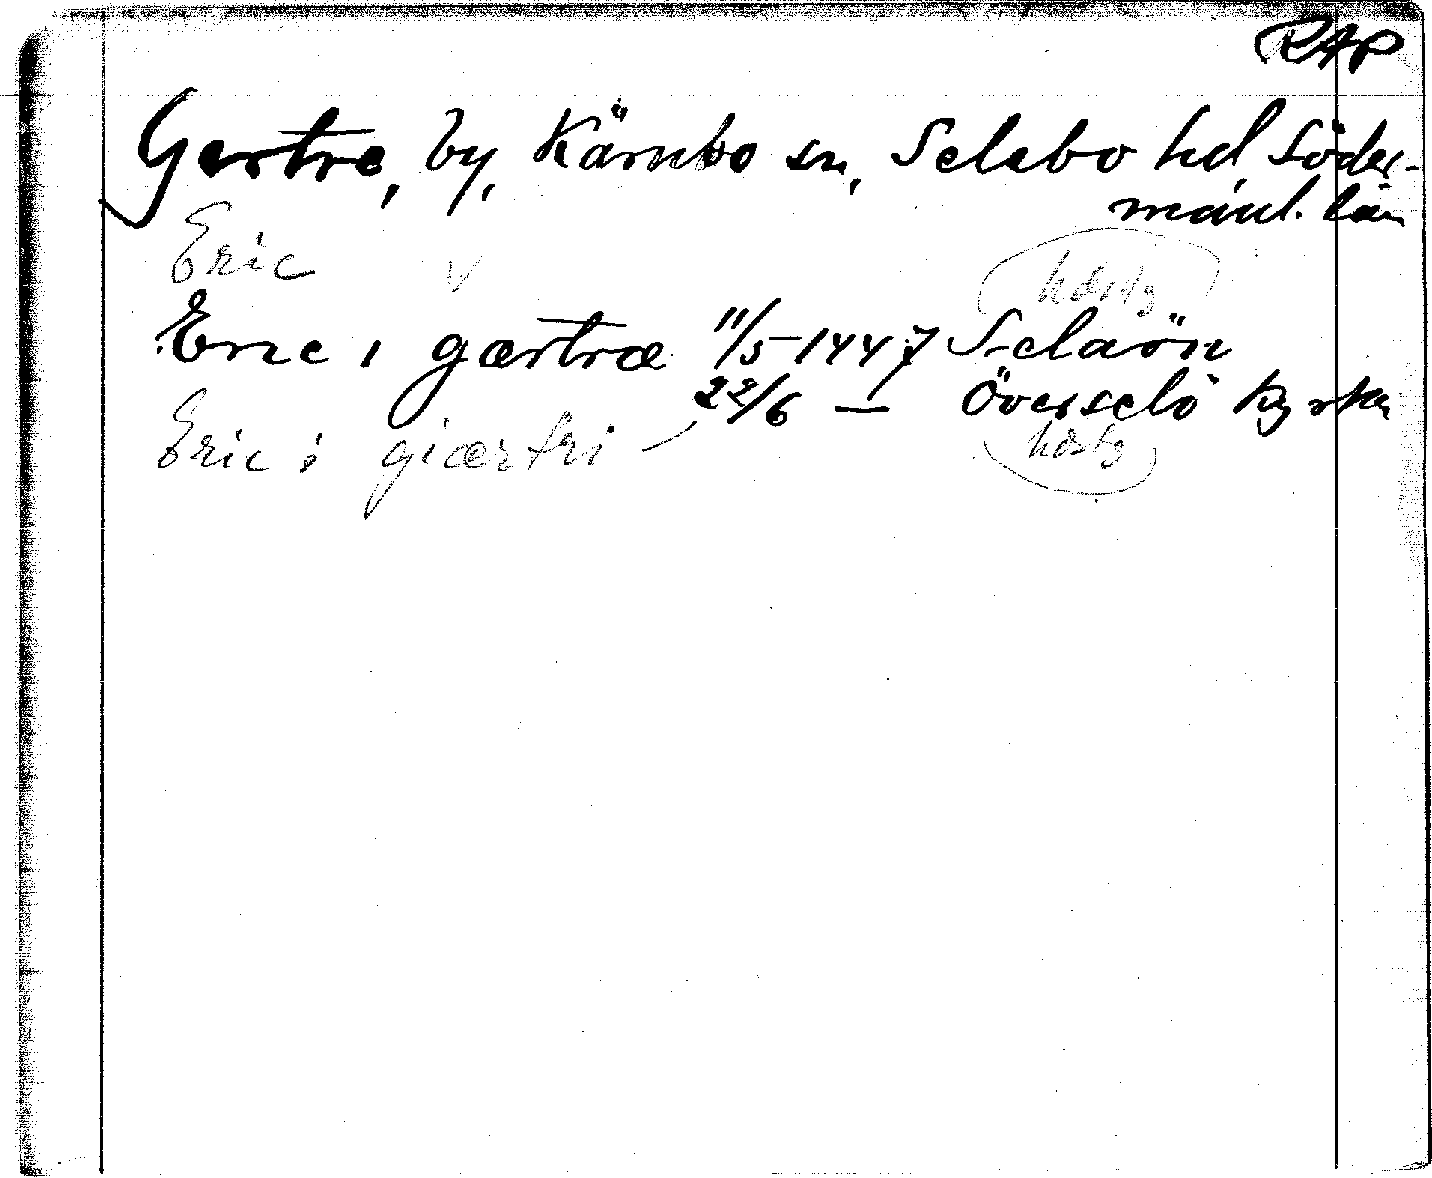 RAP
Gertre, by, Kärnbo sn, Selebo hd, Söder-
manl. län
Eric v
Eric i gærtræ 11/5 1447 Selaön
22/6 — Överselö kyrka
Eric i giærtri